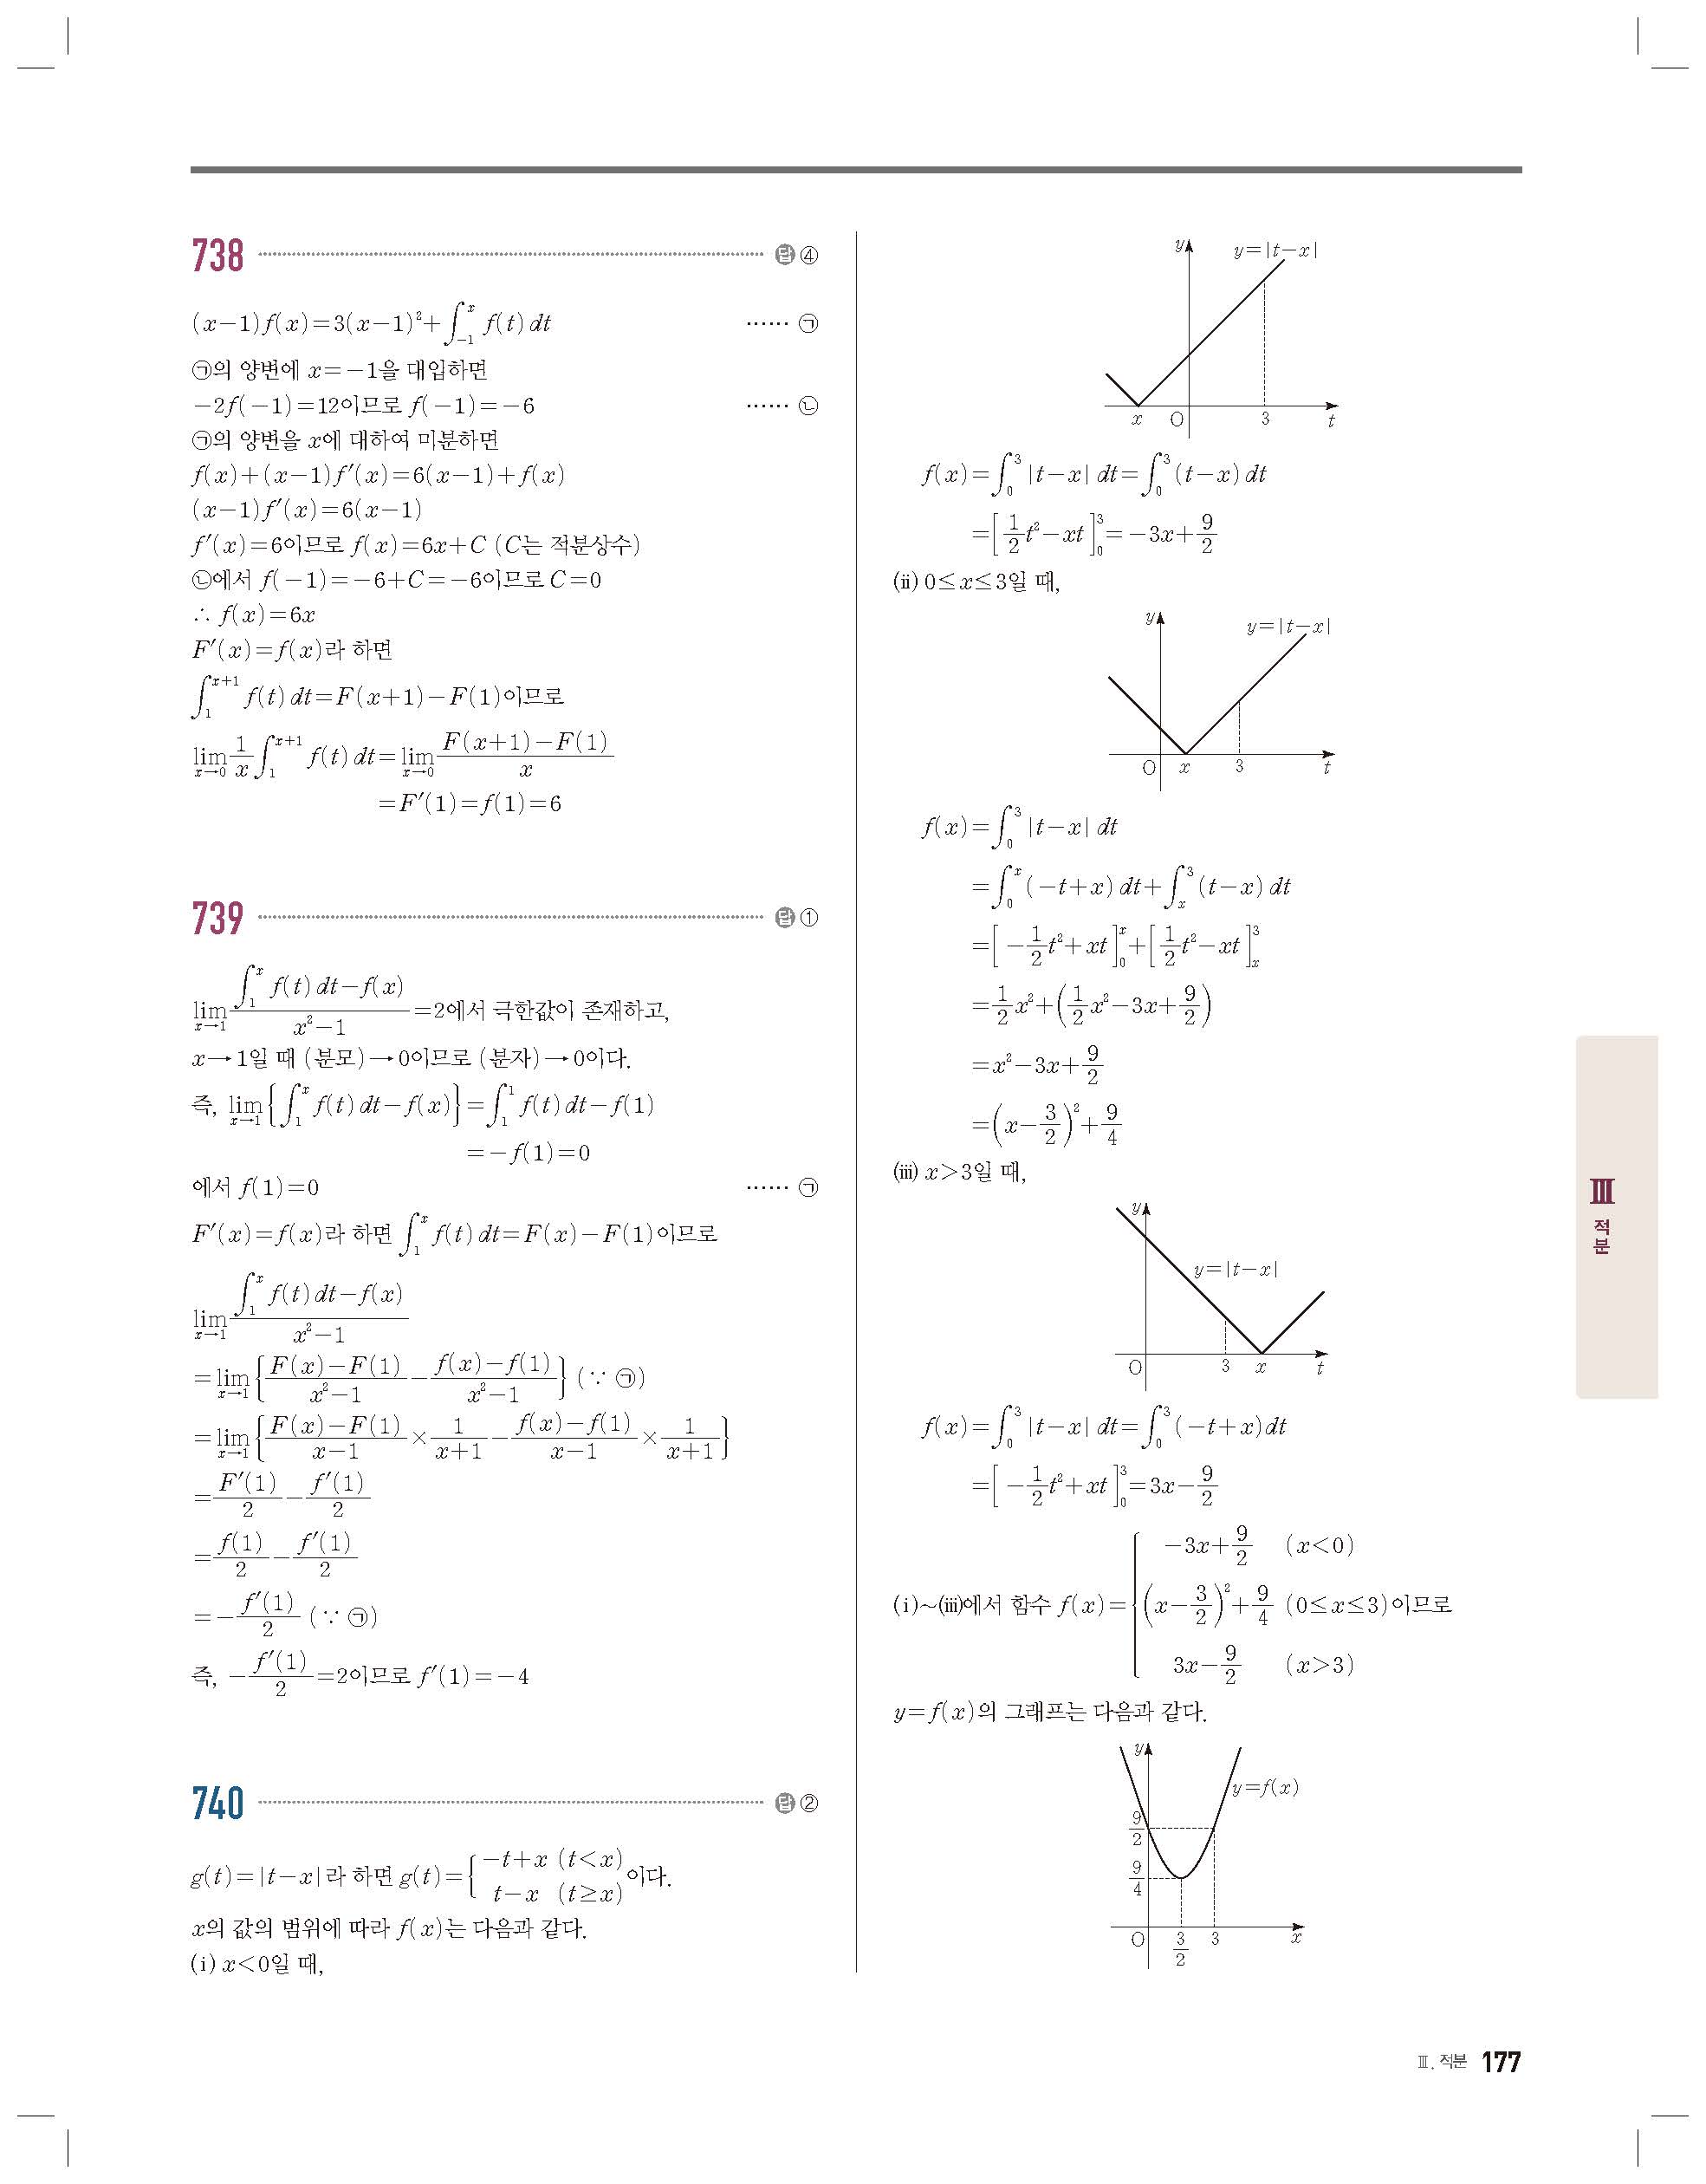 738 답 ④
(x-1)f(x)=3(x-1)²+∫_{-1}^{x} f(t)dt …… ㉠
㉠의 양변에 x=-1을 대입하면
-2f(-1)=12이므로 f(-1)=-6 …… ㉡
㉠의 양변을 x에 대하여 미분하면
f(x)+(x-1)f′(x)=6(x-1)+f(x)
(x-1)f′(x)=6(x-1)
f′(x)=6이므로 f(x)=6x+C (C는 적분상수)
㉡에서 f(-1)=-6+C=-6이므로 C=0
∴ f(x)=6x
F′(x)=f(x)라 하면
∫_{1}^{x+1} f(t)dt=F(x+1)-F(1)이므로
lim_{x→0} \frac{1}{x}∫_{1}^{x+1} f(t)dt=lim_{x→0} \frac{F(x+1)-F(1)}{x}
=F′(1)=f(1)=6
739 답 ①
lim_{x→1} \frac{∫_{1}^{x} f(t)dt-f(x)}{x²-1}=2에서 극한값이 존재하고,
x→1일 때 (분모)→0이므로 (분자)→0이다.
즉, lim_{x→1}{∫_{1}^{x} f(t)dt-f(x)}=∫_{1}^{1} f(t)dt-f(1)
=-f(1)=0
에서 f(1)=0 …… ㉠
F′(x)=f(x)라 하면 ∫_{1}^{x} f(t)dt=F(x)-F(1)이므로
lim_{x→1} \frac{∫_{1}^{x} f(t)dt-f(x)}{x²-1}
=lim_{x→1}{\frac{F(x)-F(1)}{x²-1}-\frac{f(x)-f(1)}{x²-1}} (∵ ㉠)
=lim_{x→1}{\frac{F(x)-F(1)}{x-1}×\frac{1}{x+1}-\frac{f(x)-f(1)}{x-1}×\frac{1}{x+1}}
=\frac{F′(1)}{2}-\frac{f′(1)}{2}
=\frac{f(1)}{2}-\frac{f′(1)}{2}
=-\frac{f′(1)}{2} (∵ ㉠)
즉, -\frac{f′(1)}{2}=2이므로 f′(1)=-4
740 답 ②
g(t)=|t-x|라 하면 g(t)={ -t+x (t<x)
t-x (t≥x) 이다.
x의 값의 범위에 따라 f(x)는 다음과 같다.
(ⅰ) x<0일 때,
y y=|t-x|
x O 3 t
f(x)=∫_{0}^{3}|t-x|dt=∫_{0}^{3}(t-x)dt
=[\frac{1}{2}t²-xt]_{0}^{3}=-3x+\frac{9}{2}
(ⅱ) 0≤x≤3일 때,
y y=|t-x|
O x 3 t
f(x)=∫_{0}^{3}|t-x|dt
=∫_{0}^{x}(-t+x)dt+∫_{x}^{3}(t-x)dt
=[-\frac{1}{2}t²+xt]_{0}^{x}+[\frac{1}{2}t²-xt]_{x}^{3}
=\frac{1}{2}x²+(\frac{1}{2}x²-3x+\frac{9}{2})
=x²-3x+\frac{9}{2}
=(x-\frac{3}{2})²+\frac{9}{4}
(ⅲ) x>3일 때,
y
y=|t-x|
O 3 x t
f(x)=∫_{0}^{3}|t-x|dt=∫_{0}^{3}(-t+x)dt
=[-\frac{1}{2}t²+xt]_{0}^{3}=3x-\frac{9}{2}
-3x+\frac{9}{2} (x<0)
(ⅰ)~(ⅲ)에서 함수 f(x)={ (x-\frac{3}{2})²+\frac{9}{4} (0≤x≤3)이므로
3x-\frac{9}{2} (x>3)
y=f(x)의 그래프는 다음과 같다.
y
y=f(x)
\frac{9}{2}
\frac{9}{4}
O \frac{3}{2} 3 x
Ⅲ
적분
Ⅲ. 적분 177